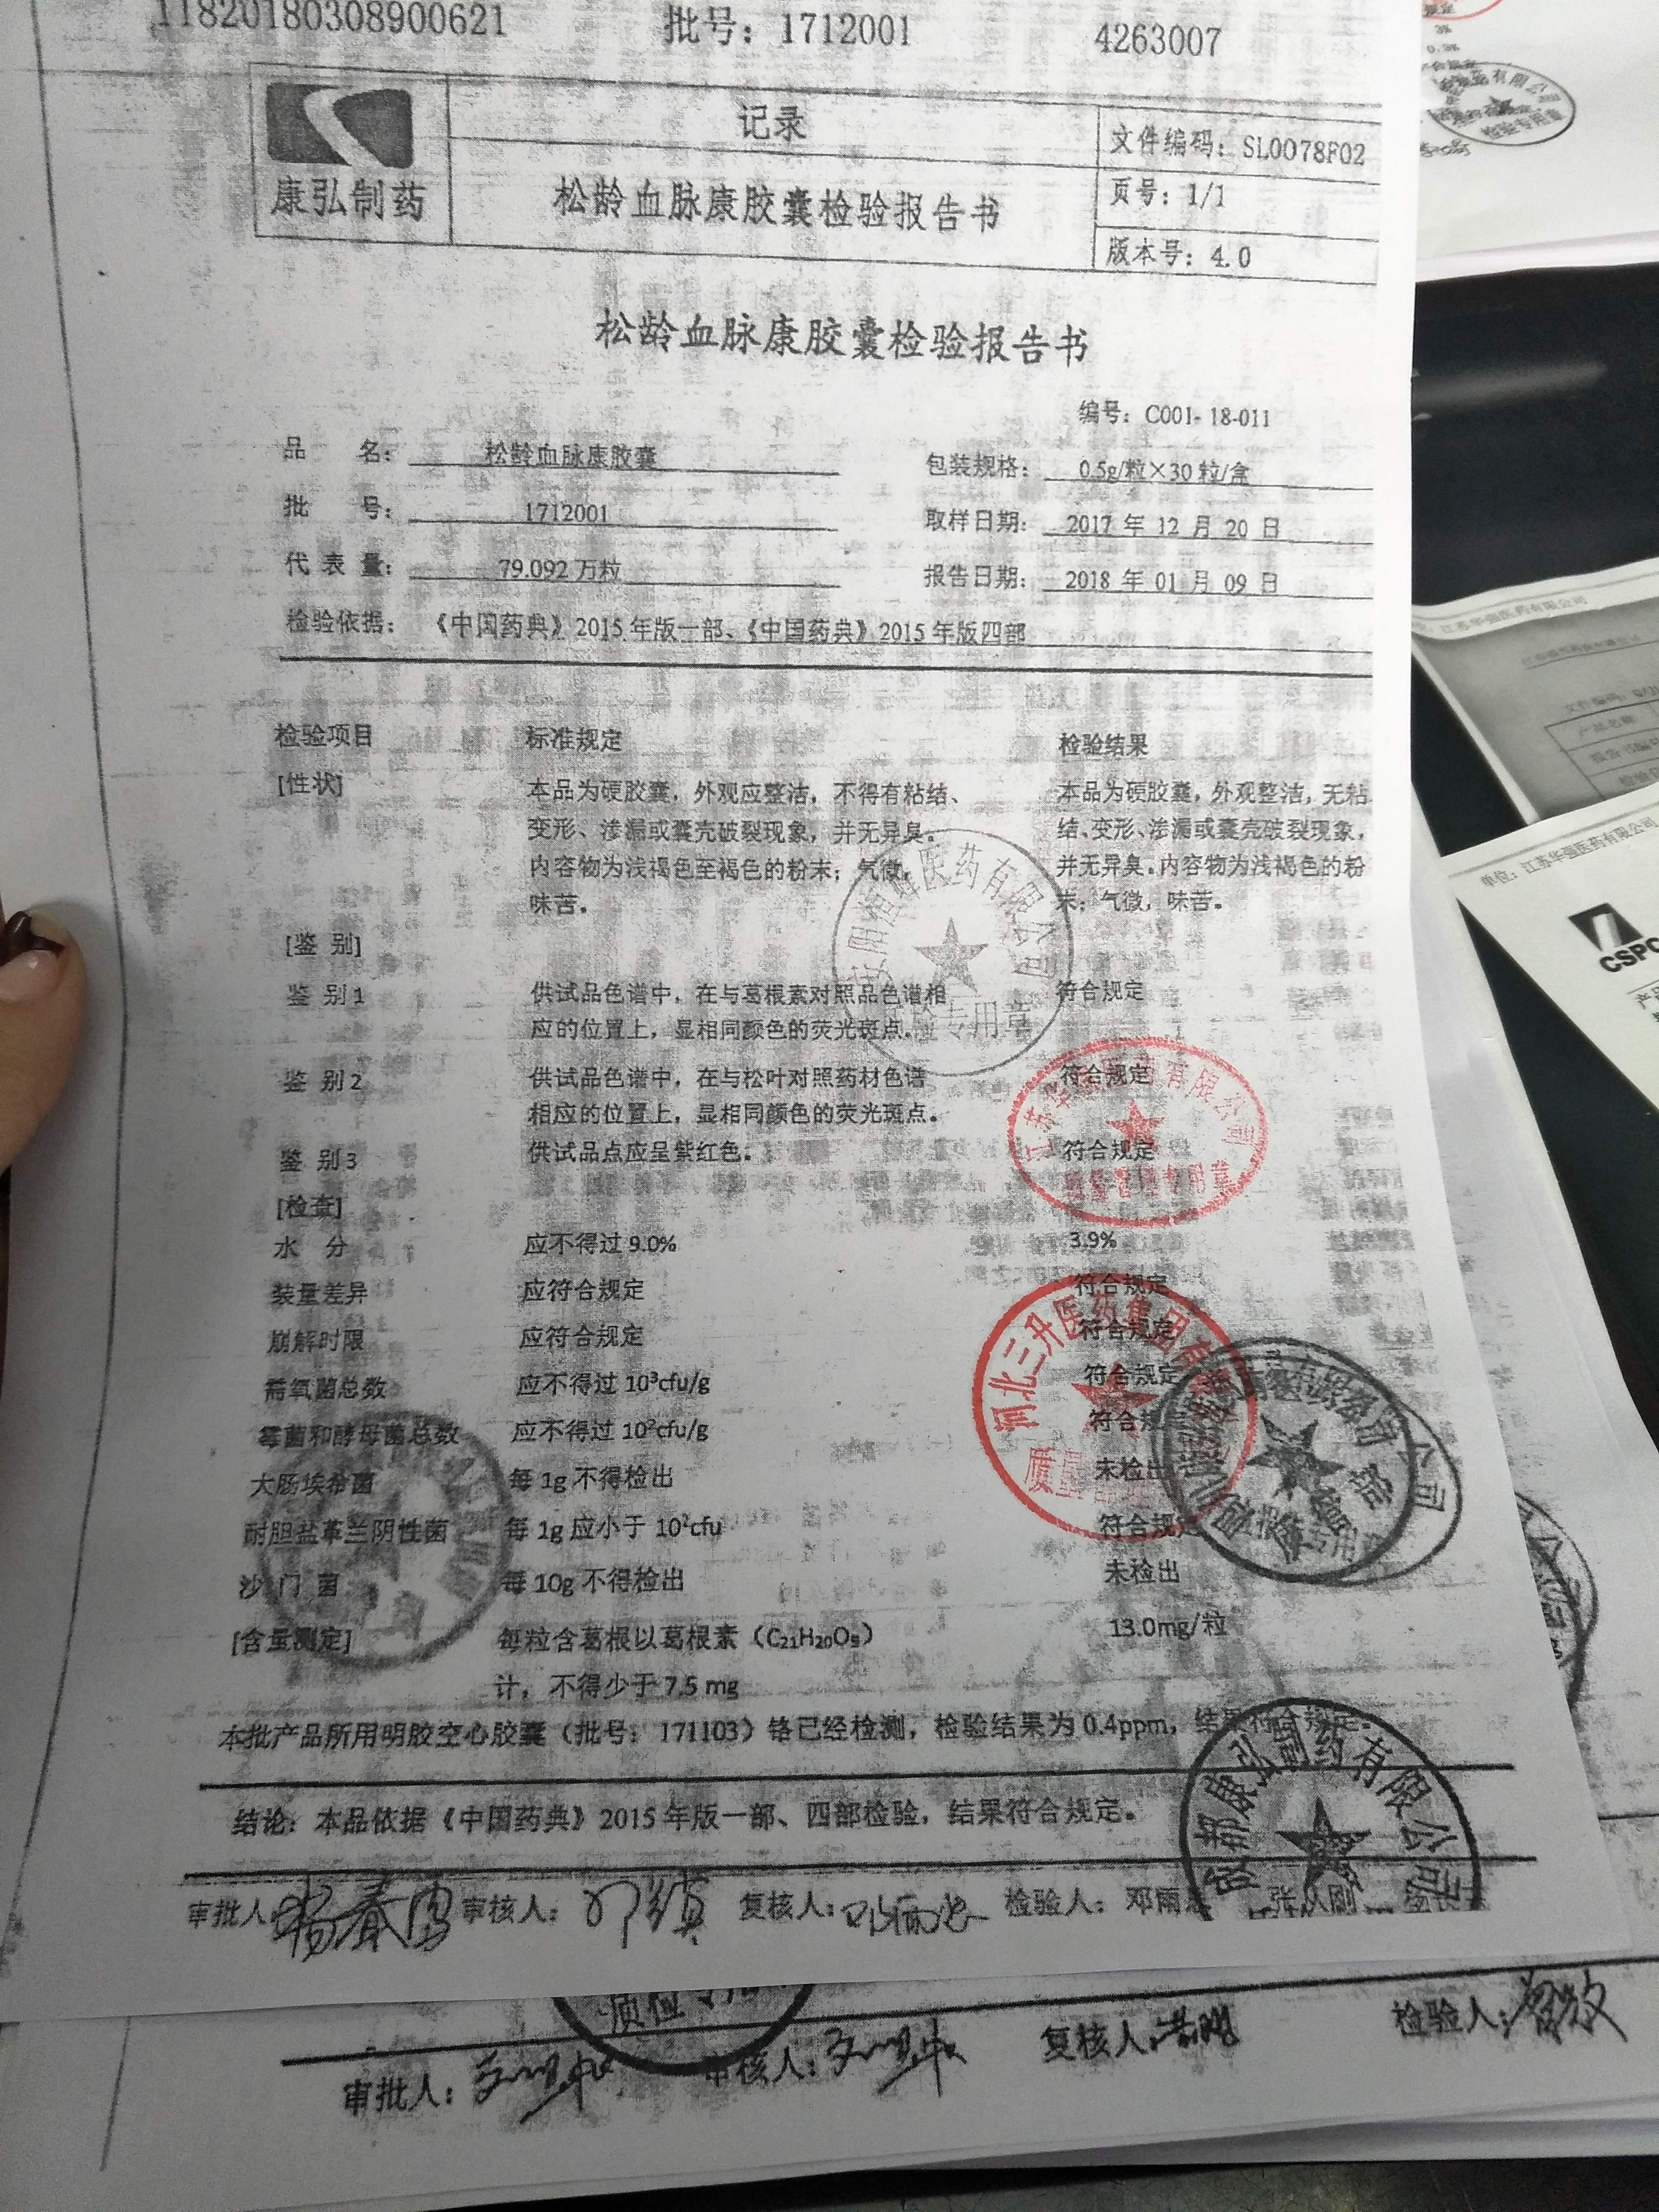 11820180308900621 批号：1712001 4263007
康弘制药
记录
松龄血脉康胶囊检验报告书
文件编码：SL0078F02
页号：1/1
版本号：4.0
松龄血脉康胶囊检验报告书
编号：C001-18-011
品 名：松龄血脉康胶囊 包装规格：0.5g/粒×30粒/盒
批 号：1712001 取样日期：2017 年 12 月 20 日
代 表 量：79.092 万粒 报告日期：2018 年 01 月 09 日
检验依据：《中国药典》2015年版一部、《中国药典》2015年版四部
检验项目 标准规定 检验结果
[性状] 本品为硬胶囊，外观应整洁，不得有粘结、 本品为硬胶囊，外观整洁，无粘
变形、渗漏或囊壳破裂现象，并无异臭。 结、变形、渗漏或囊壳破裂现象，
内容物为浅褐色至褐色的粉末；气微， 并无异臭。内容物为浅褐色的粉
味苦。 末；气微，味苦。
[鉴 别]
鉴 别1 供试品色谱中，在与葛根素对照品色谱相 符合规定
应的位置上，显相同颜色的荧光斑点。
鉴 别2 供试品色谱中，在与松叶对照药材色谱 符合规定
相应的位置上，显相同颜色的荧光斑点。
鉴 别3 供试品点应呈紫红色。 符合规定
[检查]
水 分 应不得过 9.0% 3.9%
装量差异 应符合规定 符合规定
崩解时限 应符合规定 符合规定
需氧菌总数 应不得过 10³cfu/g 符合规定
霉菌和酵母菌总数 应不得过 10²cfu/g 符合
大肠埃希菌 每 1g 不得检出 未检出
耐胆盐革兰阴性菌 每 1g 应小于 10²cfu 符合规定
沙 门 菌 每 10g 不得检出 未检出
[含量测定] 每粒含葛根以葛根素（C₂₁H₂₀O₉） 13.0mg/粒
计，不得少于 7.5 mg
本批产品所用明胶空心胶囊（批号：171103）铬已经检测，检验结果为 0.4ppm，结果符合规定。
结论：本品依据《中国药典》2015年版一部、四部检验，结果符合规定。
审批人： 审核人： 复核人： 检验人：邓雨
医药有限公司
专用章
江苏华强医药有限公司
质量管理专用章
河北三升医药集团有
质量
成都康弘制药有限公司
审批人： 审核人： 复核人： 检验人：
检验专用章
江苏华强医药有限公司
产品名称
单位：江苏华强医药有限公司
CSPC